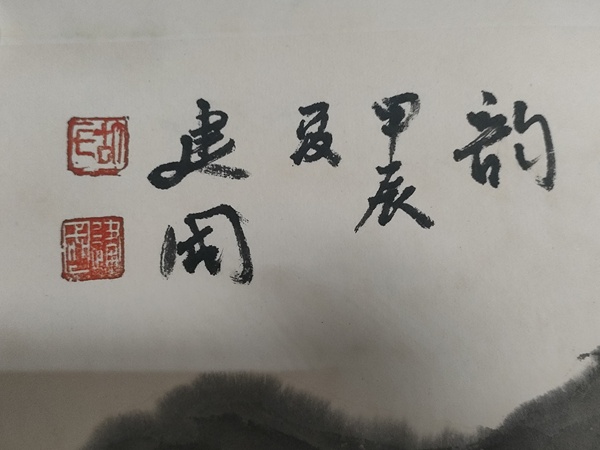 韵
甲辰
夏
建国